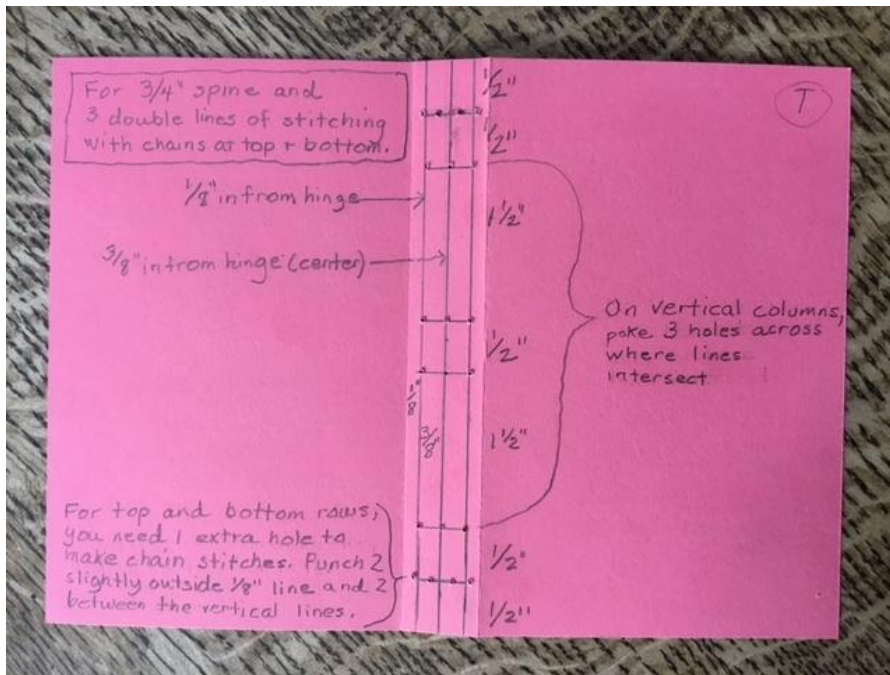 For 3/4" spine and
3 double lines of stitching
with chains at top + bottom.
T
1/2"
1/2"
1/8" in from hinge
1 1/2"
3/8" in from hinge (center)
On vertical columns,
poke 3 holes across
where lines
intersect
1/2"
1/8"
3/8"
1 1/2"
For top and bottom rows,
you need 1 extra hole to
make chain stitches. Punch 2
slightly outside 1/8" line and 2
between the vertical lines.
1/2"
1/2"